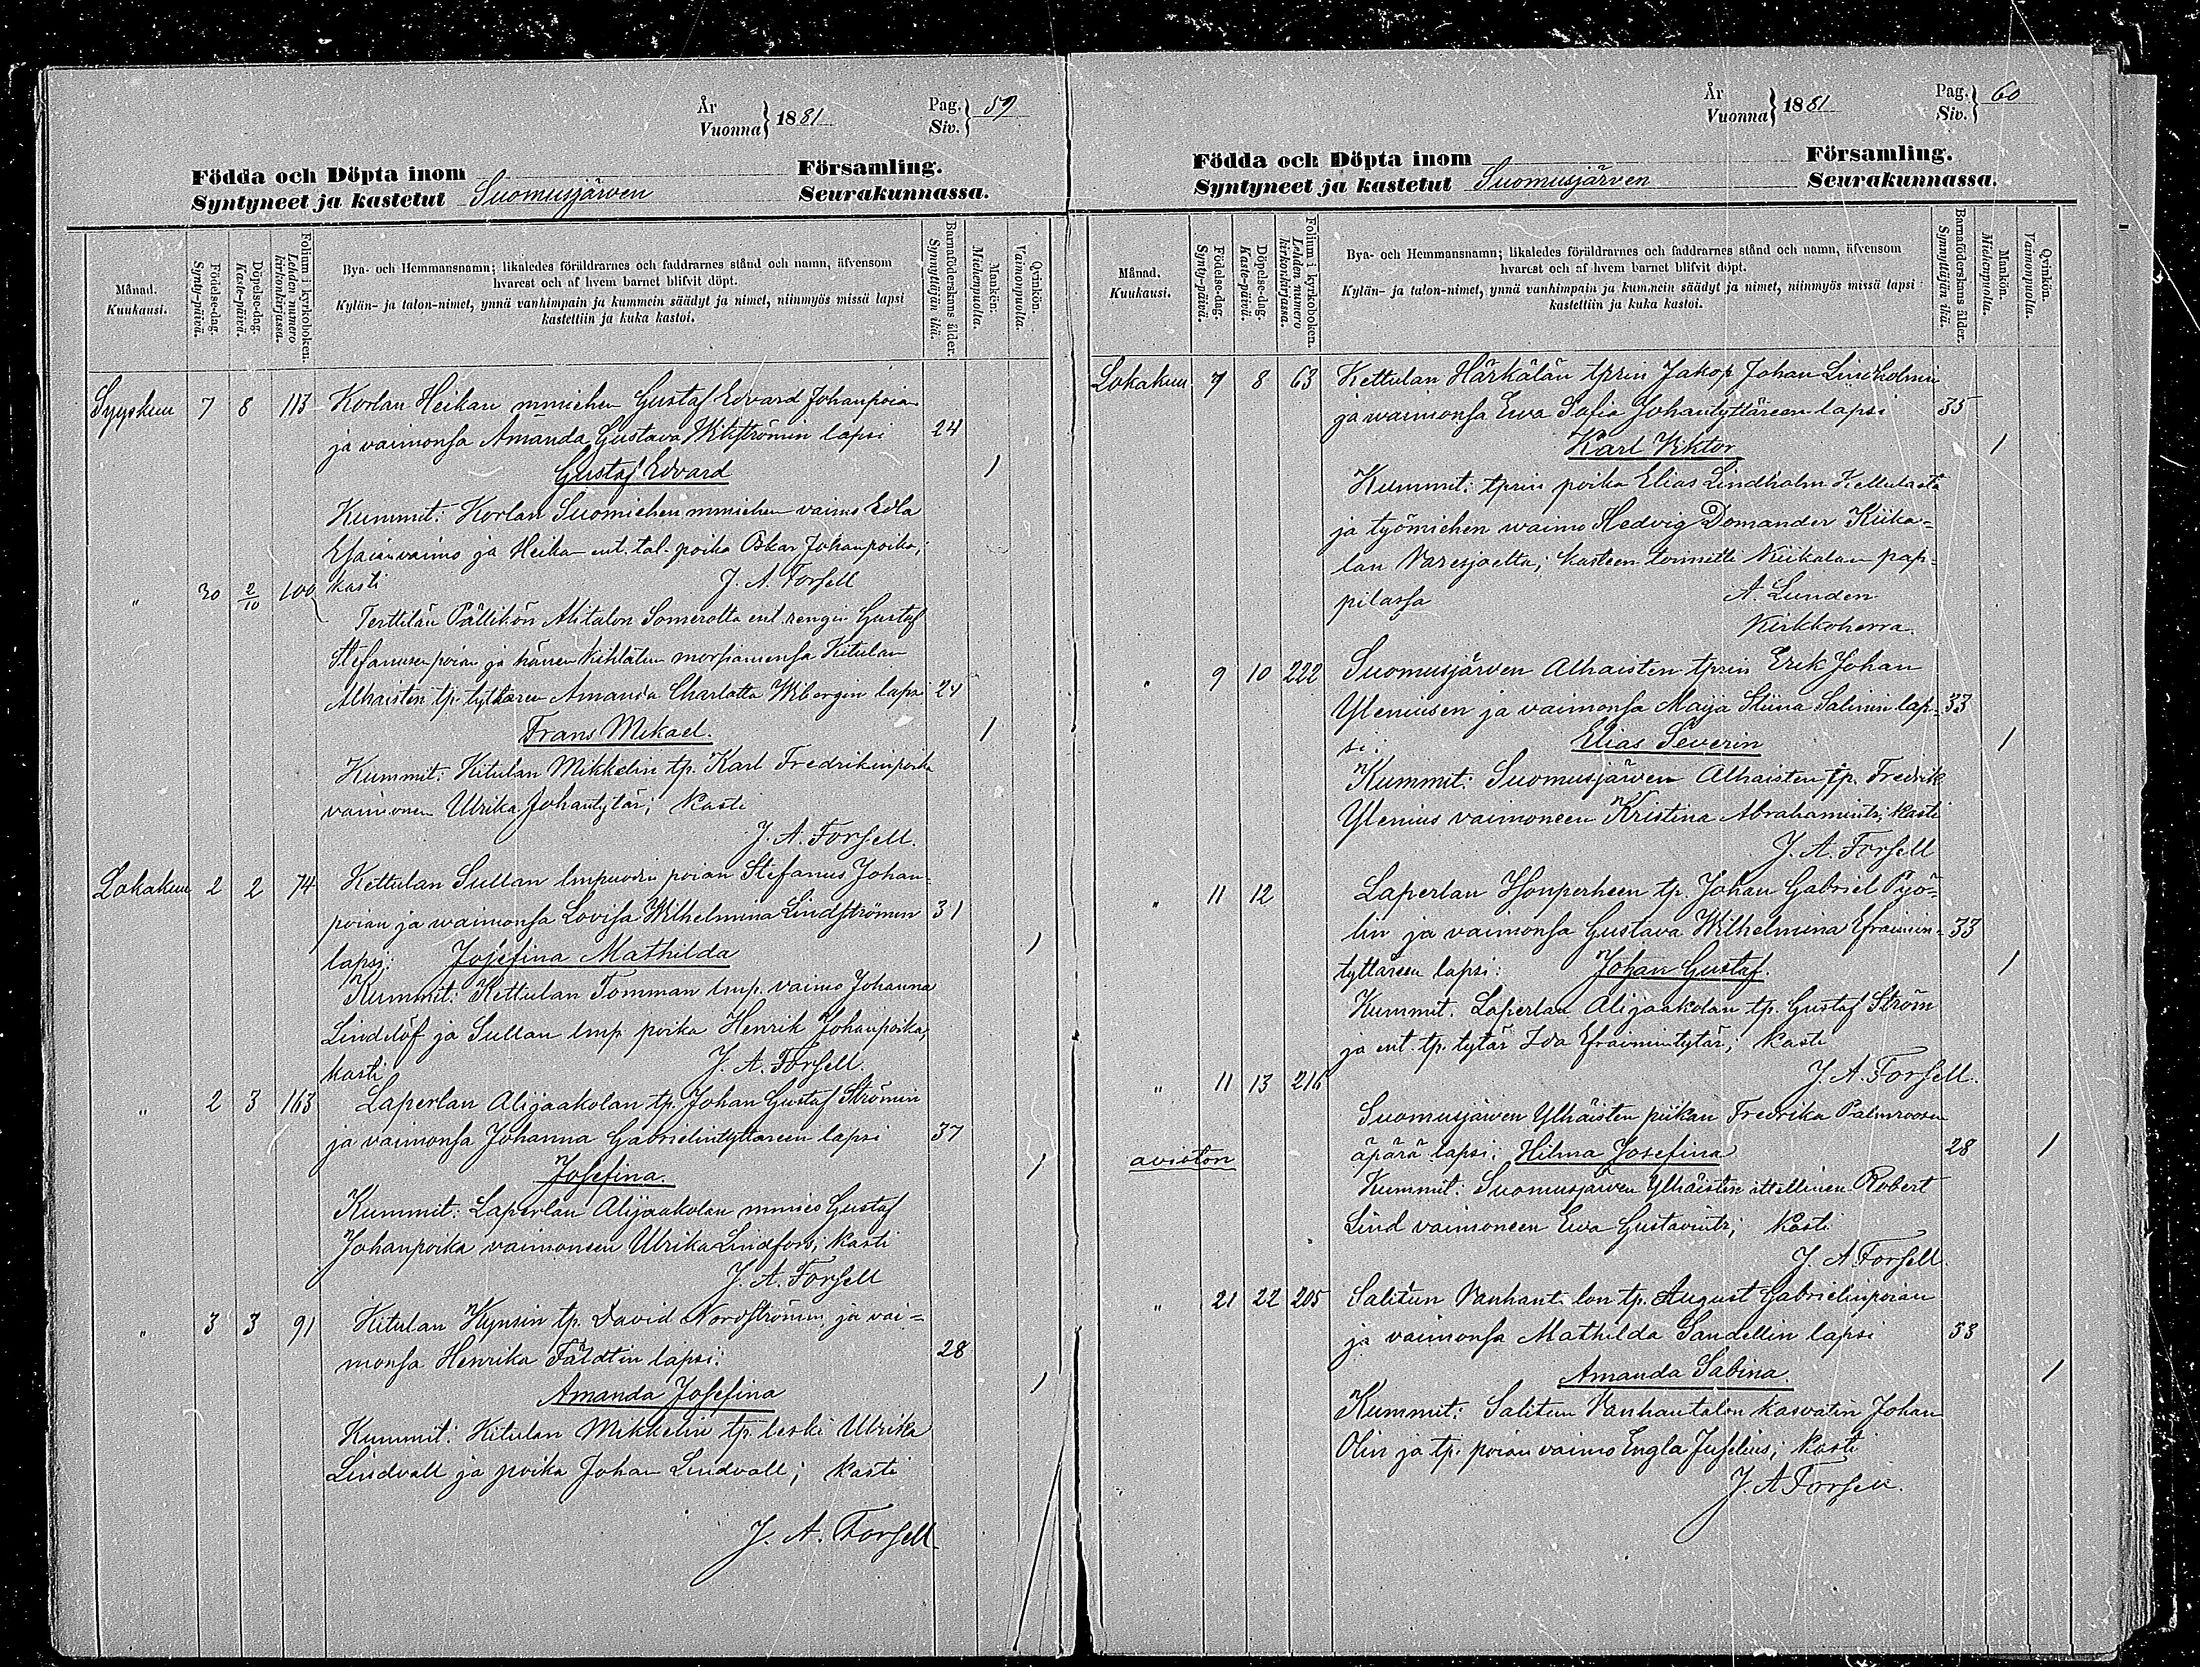 År
Vuonna } 1881
Pag.
Siv. } 59
Födda och Döpta inom Församling.
Syntyneet ja kastetut Suomusjärven Seurakunnassa.
Månad.
Kuukausi.
Födelse-dag.
Synty-päivä.
Döpelse-dag.
Kaste-päivä.
Folium i kyrkoboken.
Lehden numero kirkonkirjassa.
Bya- och Hemmansnamn; likaledes föräldrarnes och faddrarnes stånd och namn, äfvensom
hvarest och af hvem barnet blifvit döpt.
Kylän- ja talon-nimet, ynnä vanhimpain ja kummein säädyt ja nimet, niinmyös missä lapsi
kastettiin ja kuka kastoi.
Barnaföderskans ålder.
Synnyttäjän ikä.
Mankön.
Miehenpuolta.
Qvinkön.
Vaimonpuolta.
Syyskuu 7 8 113 Korlan Heikan mmiehen Gustaf Edvard Johanpoian
ja vaimonsa Amanda Gustava Wikströmin lapsi 24
Gustaf Edvard 1
Kummit: Korlan Suomiehen mmiehen vaimo Edla
Esaianvaimo ja Heikan ent. tal. poika Oskar Johanpoika;
kasti J. A. Forsell
" 30 2/10 100 Terttilän Pällikön Alitalon Somerolta ent. rengin Gustaf
Stefanusenpoian ja hänen kihlatun morsiamensa Kitulan
Alhaisten tp. tyttären Amanda Charlotta Wibergin lapsi 24
Frans Mikael. 1
Kummit: Kitulan Mikkelin tp. Karl Fredrikinpoika
vaimonen Ulrika Johantytär; kasti
J. A. Forsell.
Lokakuu 2 2 74 Kettulan Sullan lmpuodin poian Stefanus Johan-
poian ja waimonsa Lovisa Wilhelmina Lindströmin 31
lapsi: Josefina Mathilda 1
Kummit: Kettulan Tomman lmp. vaimo Johanna
Lindelöf ja Sullan lmp. poika Henrik Johanpoika,
kasti J. A. Forsell.
" 2 3 163 Laperlan Alijaakolan tp. Johan Gustaf Strömin
ja vaimonsa Johanna Gabrielintyttäreen lapsi 37
Josefina. 1
Kummit: Laperlan Alijaakolan mmies Gustaf
Johanpoika vaimoneen Ulrika Lindfors; kasti
J. A. Forsell
" 3 3 91 Kitulan Hynsin tp. David Nordströmin ja vai=
monsa Henrika Fäldtin lapsi: 28
Amanda Josefina 1
Kummit: Kitulan Mikkelin tp. leski Ulrika
Lindvall ja poika Johan Lindvall; kasti
J. A. Forsell
År
Vuonna } 1881
Pag.
Siv. } 60
Födda och Döpta inom Församling.
Syntyneet ja kastetut Suomusjärven Seurakunnassa.
Månad.
Kuukausi.
Födelse-dag.
Synty-päivä.
Döpelse-dag.
Kaste-päivä.
Folium i kyrkoboken.
Lehden numero kirkonkirjassa.
Bya- och Hemmansnamn; likaledes föräldrarnes och faddrarnes stånd och namn, äfvensom
hvarest och af hvem barnet blifvit döpt.
Kylän- ja talon-nimet, ynnä vanhimpain ja kummein säädyt ja nimet, niinmyös missä lapsi
kastettiin ja kuka kastoi.
Barnaföderskans ålder.
Synnyttäjän ikä.
Mankön.
Miehenpuolta.
Qvinkön.
Vaimonpuolta.
Lokakuu 7 8 63 Kettulan Härkälän tprin Jakop Johan Lindholmin
ja waimonsa Ewa Sofia Johantyttäreen lapsi 35
Karl Viktor 1
Kummit: tprin poika Elias Lindholm Kettulasta
ja työmiehen waimo Hedvig Domander Kiika=
lan Varesjoelta; kasteen toimitti Kiikalan pap-
pilassa A. Lunden
Kirkkoherra.
" 9 10 222 Suomusjärven Alhaisten tprin Erik Johan
Yleniusen ja vaimonsa Maija Stiina Salinin lap- 33
si: Elias Severin 1
Kummit: Suomusjärven Alhaisten tp. Fredrik
Ylenius vaimoneen Kristina Abrahamintr; kasti
J. A. Forsell
" 11 12 Laperlan Honperheen tp. Johan Gabriel Pyö=
lin ja vaimonsa Gustava Wilhelmina Efraimin- 33
tyttäreen lapsi: Johan Gustaf. 1
Kummit. Laperlan Alijaakolan tp. Gustaf Ström
ja ent. tp. tytär Ida Efraimintytär; kasti
J. A. Forsell.
" 11 13 216
Suomusjärven Ylhäisten piikan Fredrika Palmroosen
aviston äpärä lapsi: Hilma Josefina 28 1
Kummit: Suomusjärven Ylhäisten ittellinen Robert
Lind vaimoneen Ewa Gustavintr; kasti
J. A. Forsell.
" 21 22 205 Salitun Vanhantalon tp. August Gabrielinpoian
ja vaimonsa Mathilda Sandellin lapsi 33
Amanda Sabina. 1
Kummit: Salitun Vanhantalon kasvatin Johan
Olin ja tp. poian vaimo Engla Juselius; kasti
J. A Forsell.